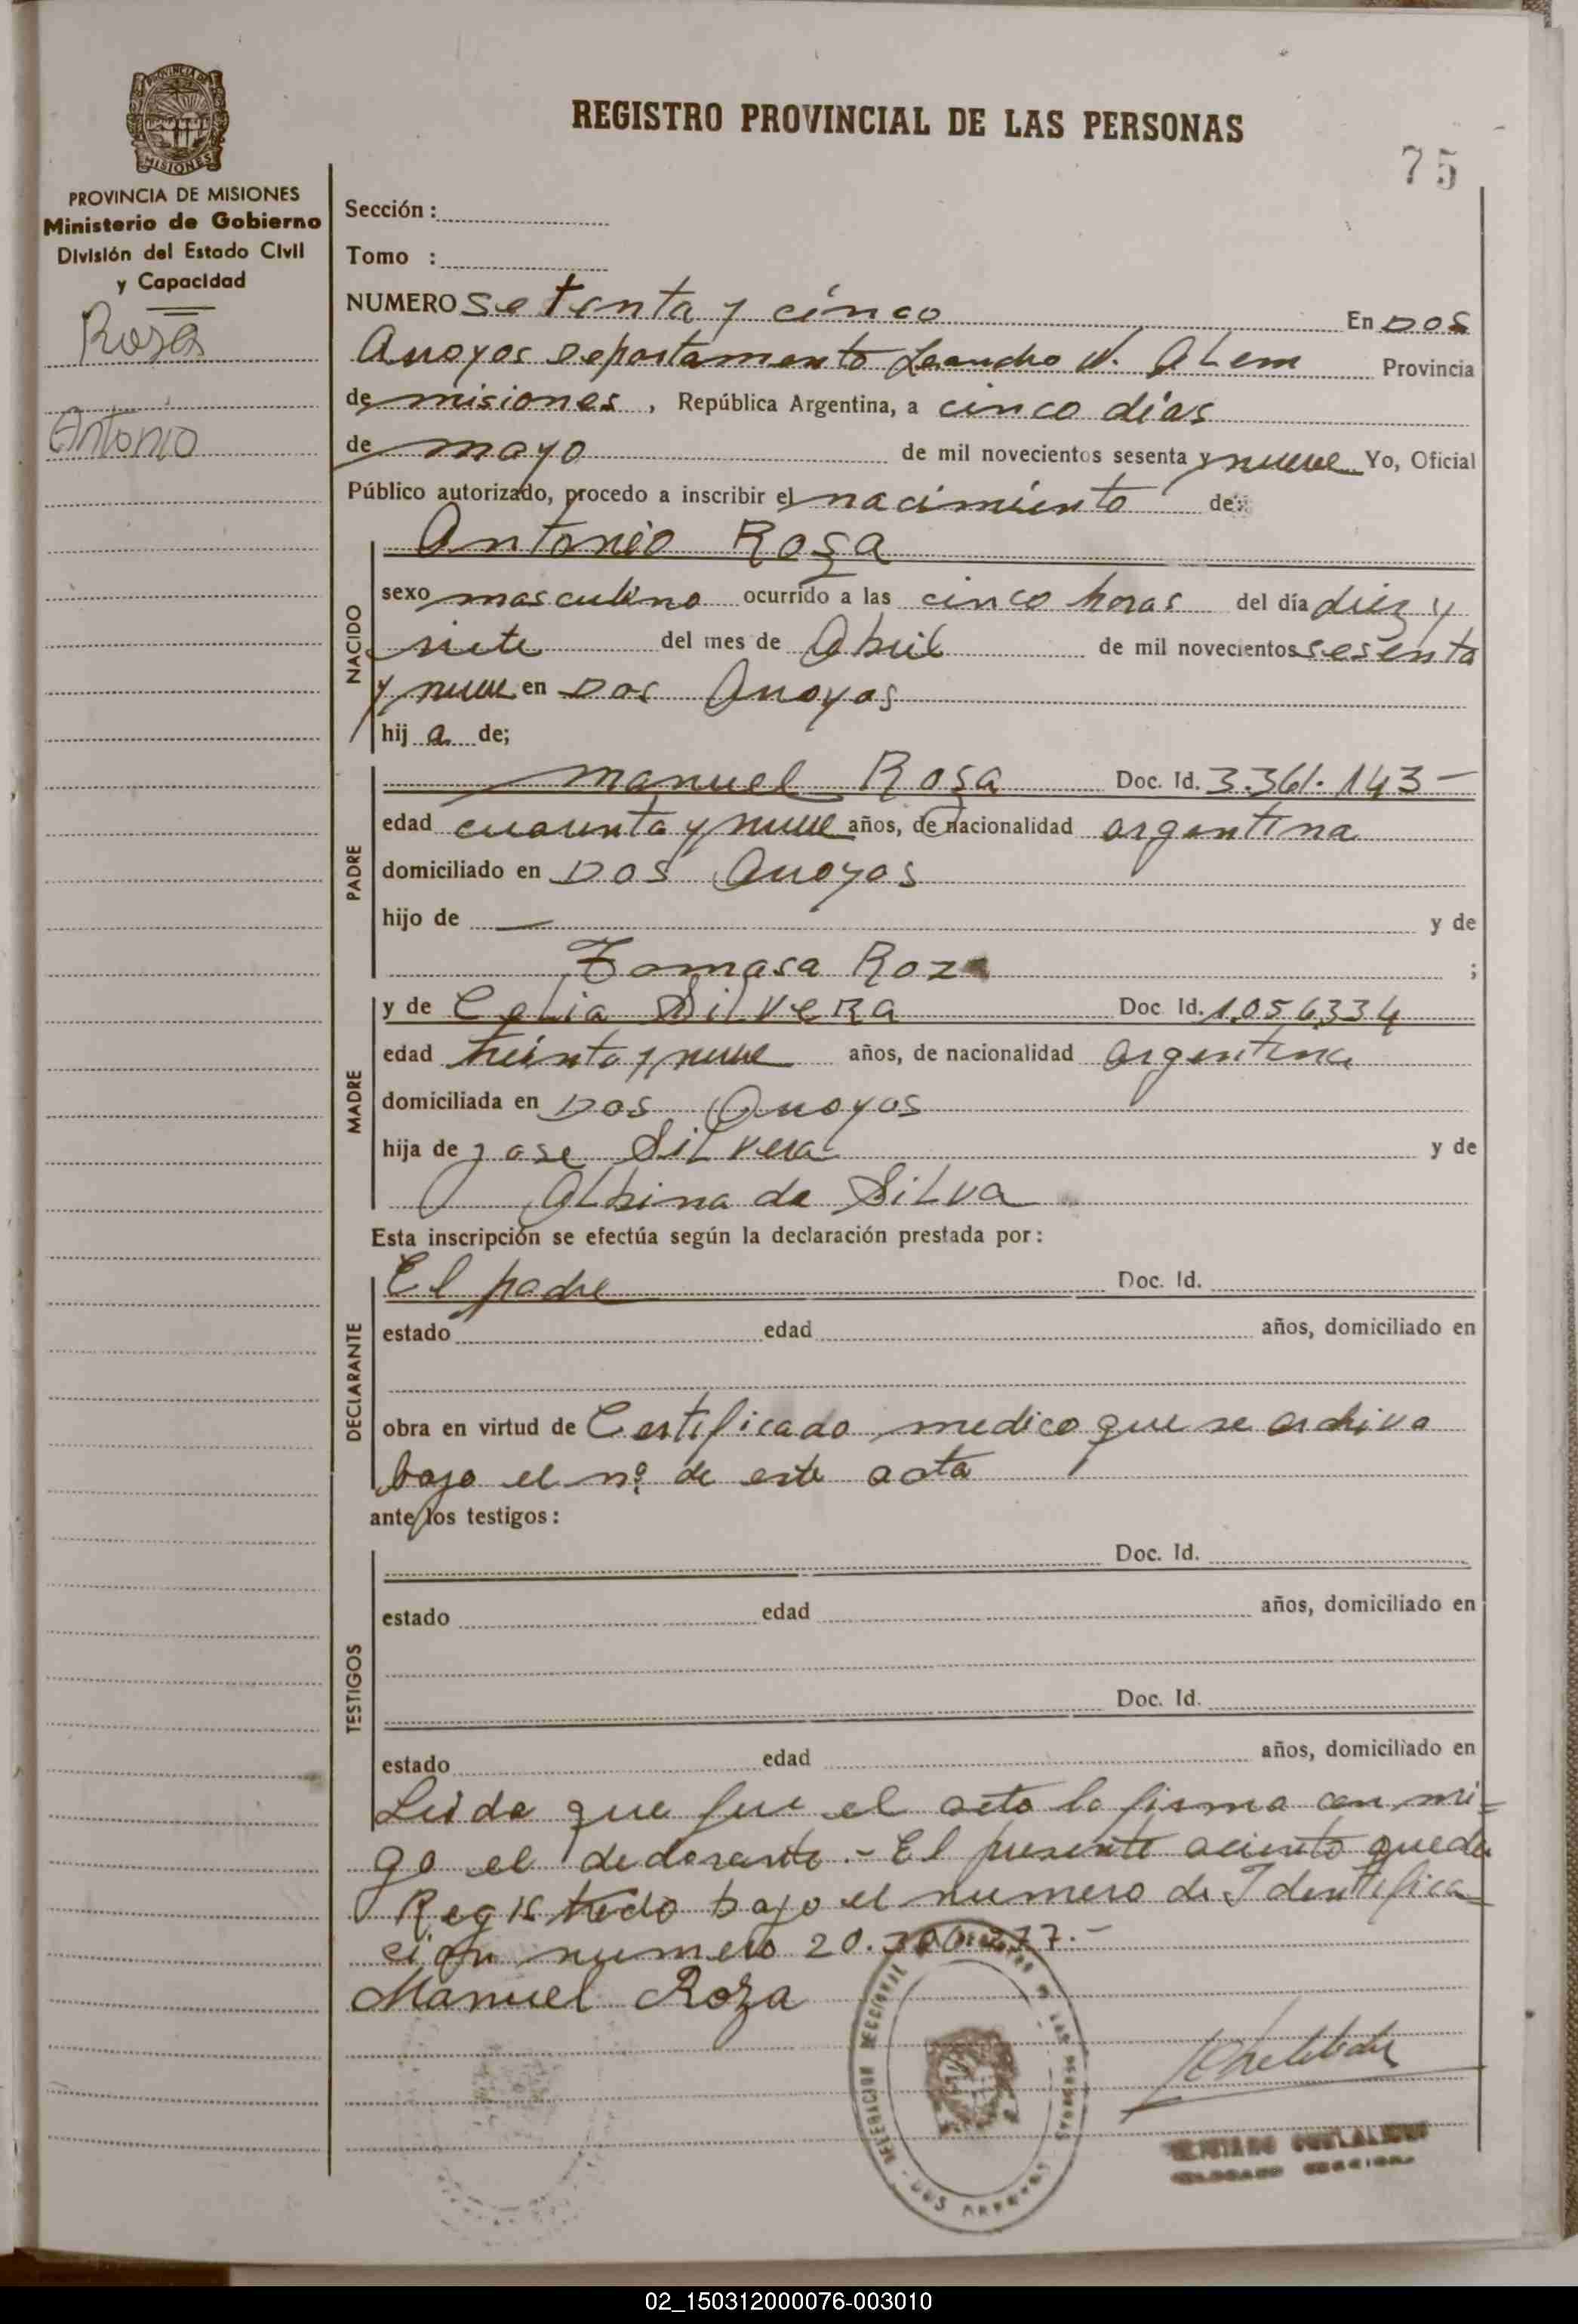 PROVINCIA DE
MISIONES
PROVINCIA DE MISIONES
Ministerio de Gobierno
División del Estado Civil
y Capacidad
Rosa
Antonio
REGISTRO PROVINCIAL DE LAS PERSONAS
75
Sección :
Tomo :
NUMERO setenta y cinco En Dos
Arroyos Departamento Leandro N. Alem Provincia
de misiones, República Argentina, a cinco días
de mayo de mil novecientos sesenta y nueve Yo, Oficial
Público autorizado, procedo a inscribir el nacimiento de:
NACIDO
Antonio Roza
sexo masculino ocurrido a las cinco horas del día diez y
siete del mes de Abril de mil novecientos sesenta
y nueve en Dos Arroyos
hij a de;
PADRE
manuel Roza Doc. Id. 3.361.143 —
edad cuarenta y nueve años, de nacionalidad argentina
domiciliado en Dos Arroyos
hijo de — y de
Tomasa Roza ;
MADRE
y de Celia Silvera Doc Id. 1.056334
edad treinta y nueve años, de nacionalidad argentina
domiciliada en Dos Arroyos
hija de Jose Silvera y de
Albina da Silva
Esta inscripción se efectúa según la declaración prestada por :
DECLARANTE
El padre Doc. Id.
estado edad años, domiciliado en
obra en virtud de Certificado medico que se archiva
bajo el nº. de este acta
ante los testigos :
TESTIGOS
Doc. Id.
estado edad años, domiciliado en
Doc. Id.
estado edad años, domiciliado en
Leida que fue el acta la firma con mi=
go el declarante.- El presente aciento queda
Registrado bajo el numero de Identifica=
cion numero 20.
Manuel Roza
02_150312000076-003010